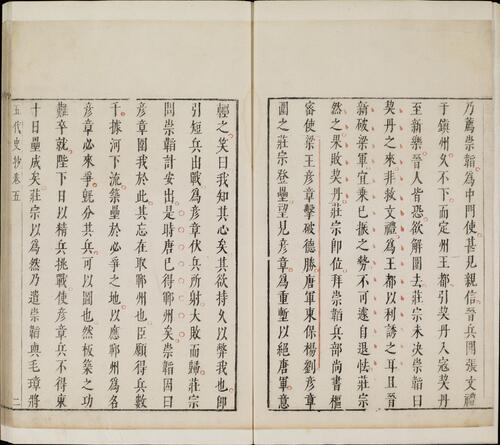 乃薦崇韜爲中門使甚見親信晉兵圍張文禮
于鎮州久不下而定州王都引契丹入寇契丹
至新樂晉人皆恐欲解圍去莊宗未決崇韜曰
契丹之來非救文禮爲王都以利誘之耳且晉
新破梁軍宜乘已振之勢不可遽自退怯莊宗
然之果敗契丹莊宗卽位拜崇韜兵部尚書樞
密使梁王彥章擊破德勝唐軍東保楊劉彥章
圍之莊宗登壘望見彥章爲重塹以絕唐軍意
輕之笑曰我知其心矣其欲持久以弊我也卽
引短兵出戰爲彥章伏兵所射大敗而歸莊宗
問崇韜計安出是時唐已得鄆州矣崇韜因曰
彥章圍我於此其志在取鄆州也臣願得兵數
千據河下流築壘於必爭之地以應鄆州爲名
彥章必來爭旣分其兵可以圖也然板築之功
難卒就陛下日以精兵挑戰使彥章兵不得東
十日壘成矣莊宗以爲然乃遣崇韜與毛璋將
五代史抄卷五
二